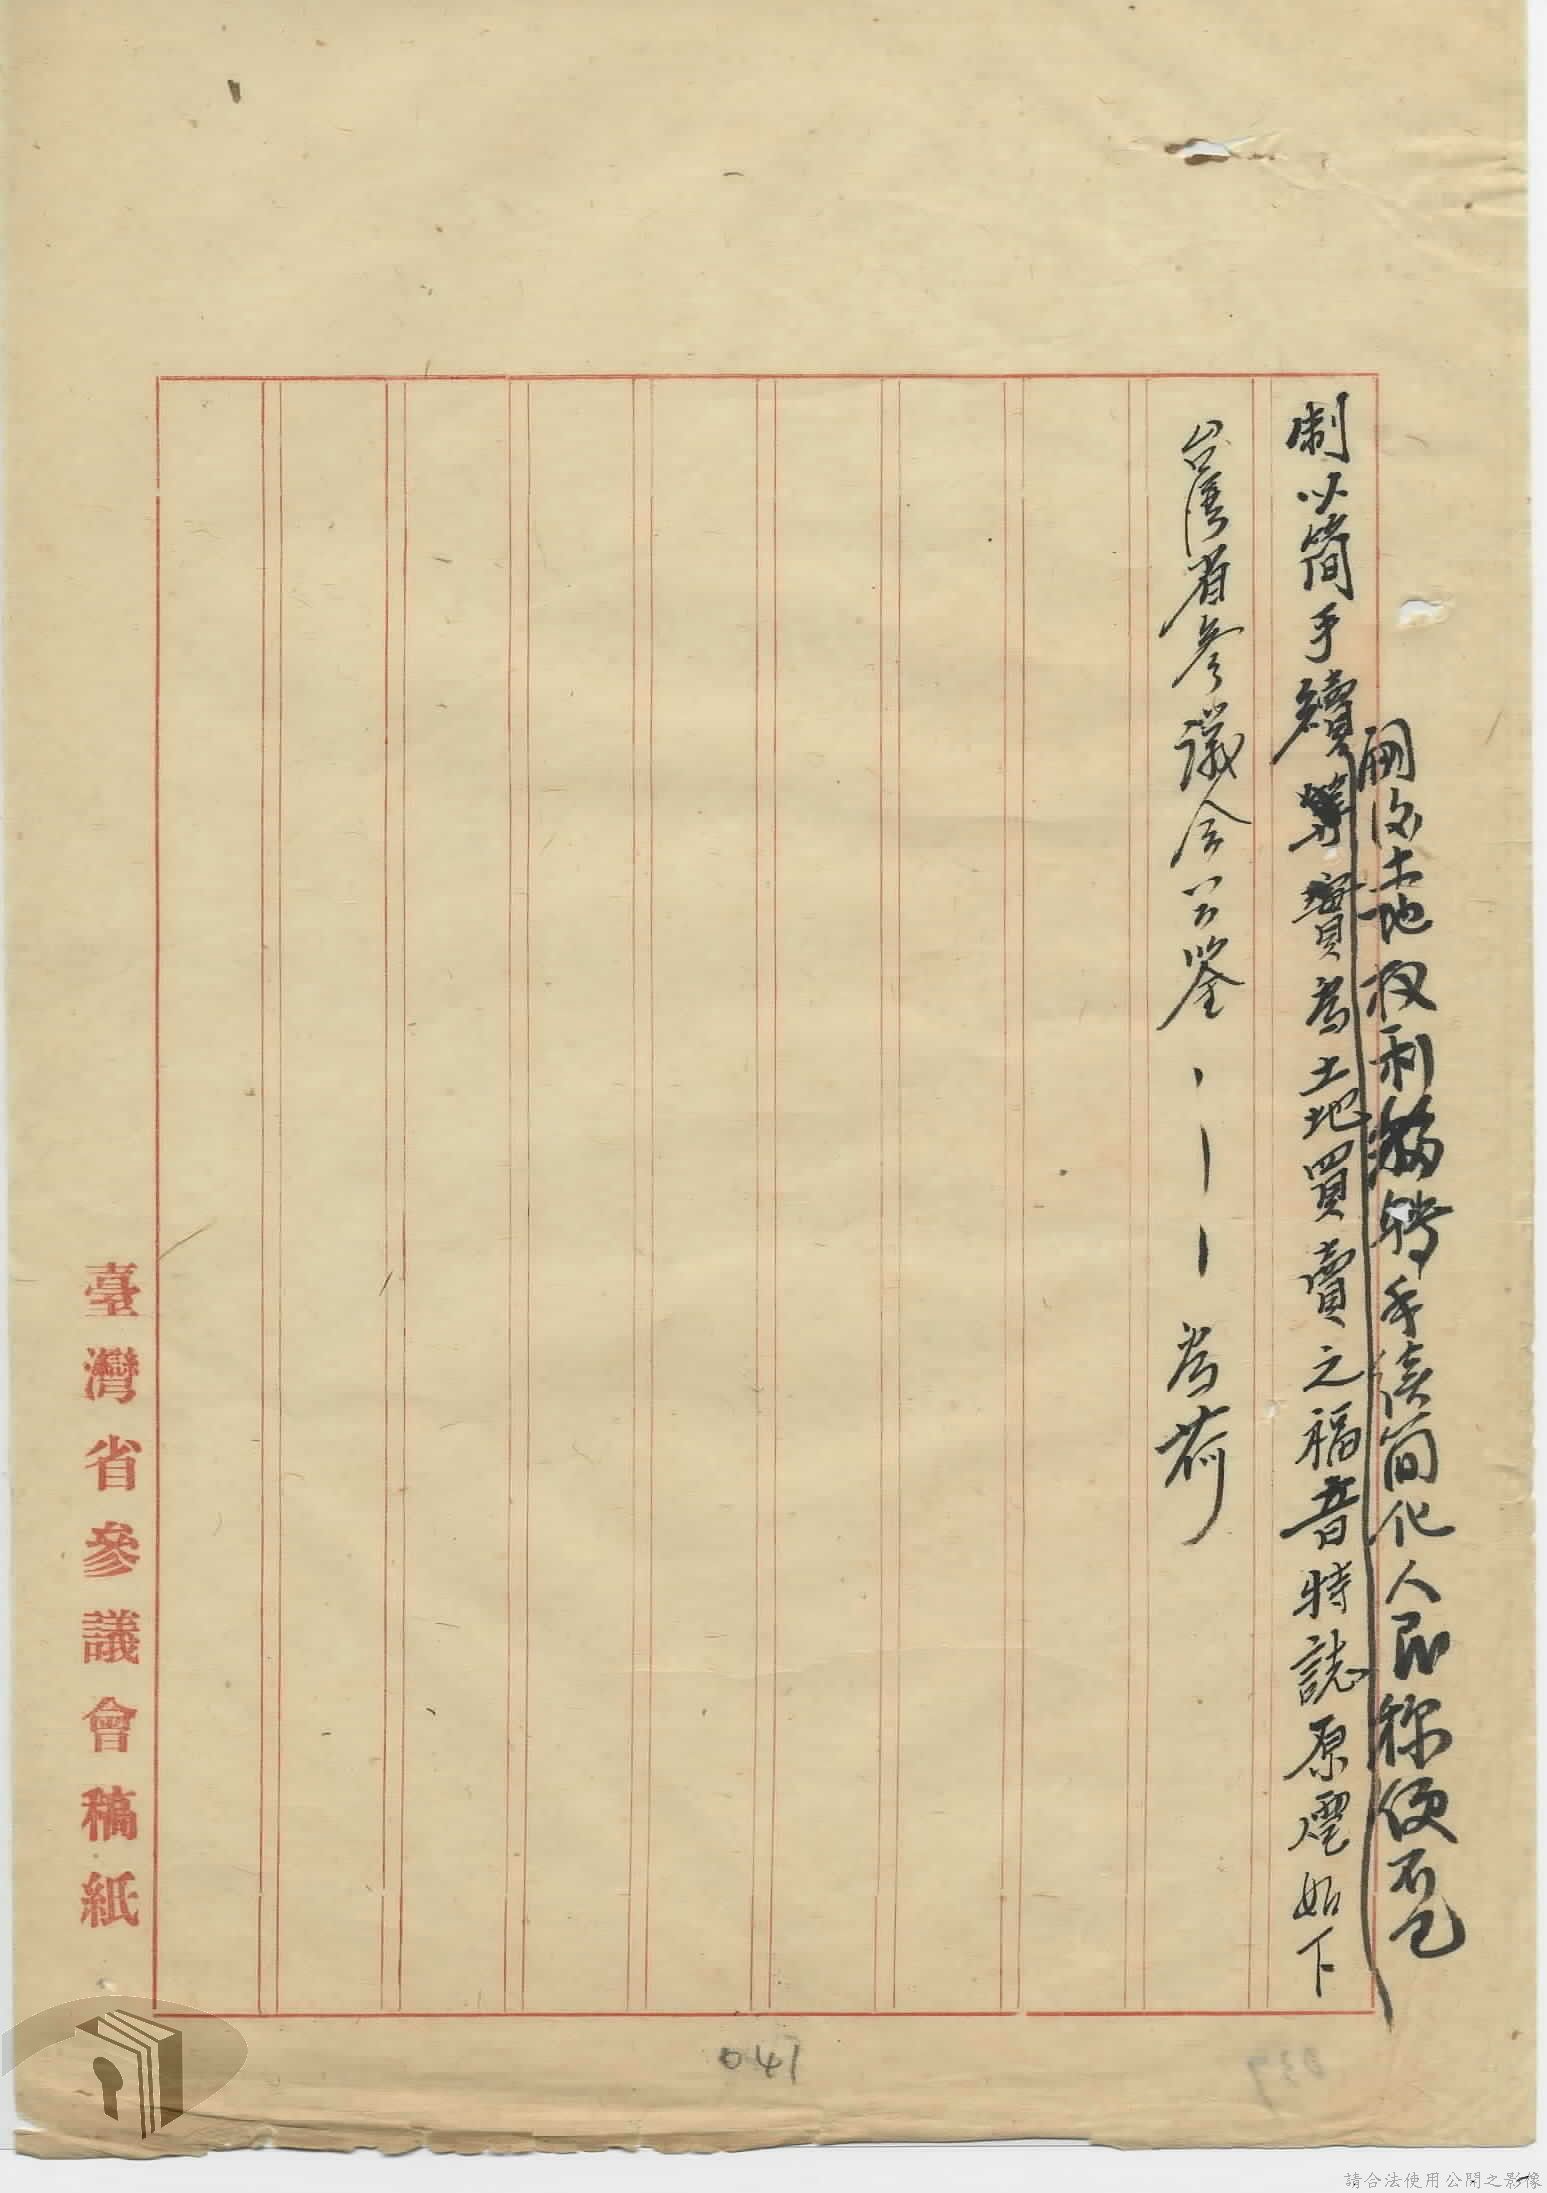 嗣後土地权利移轉手续简化人民称便不已
制以簡手續等實為土地買賣之福音特誌原電如下
台灣省參議会公鉴、——為荷
臺灣省參議會稿紙
041
037
請合法使用公開之影像